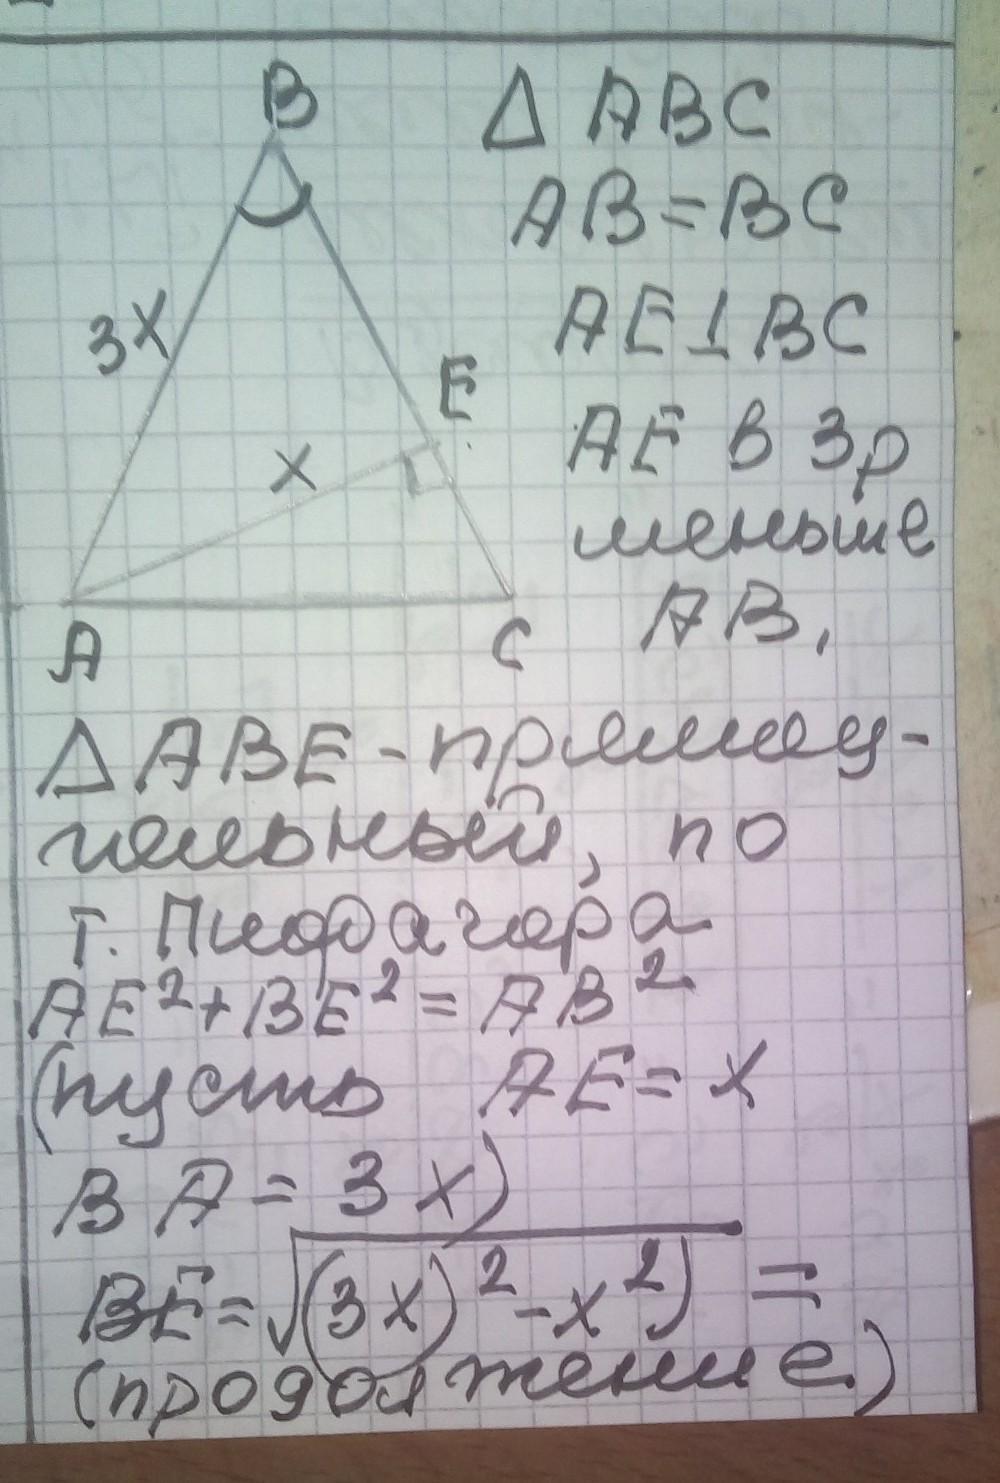 B
Δ ABC
AB = BC
3x
AE ⊥ BC
E
AE в 3р
x
меньше
AB,
A
C
Δ ABE - прямоу-
гольный, по
т. Пифагора
AE² + BE² = AB²
(пусть AE = x
BA = 3x)
BE = √((3x)² - x²) =
(продолжение)